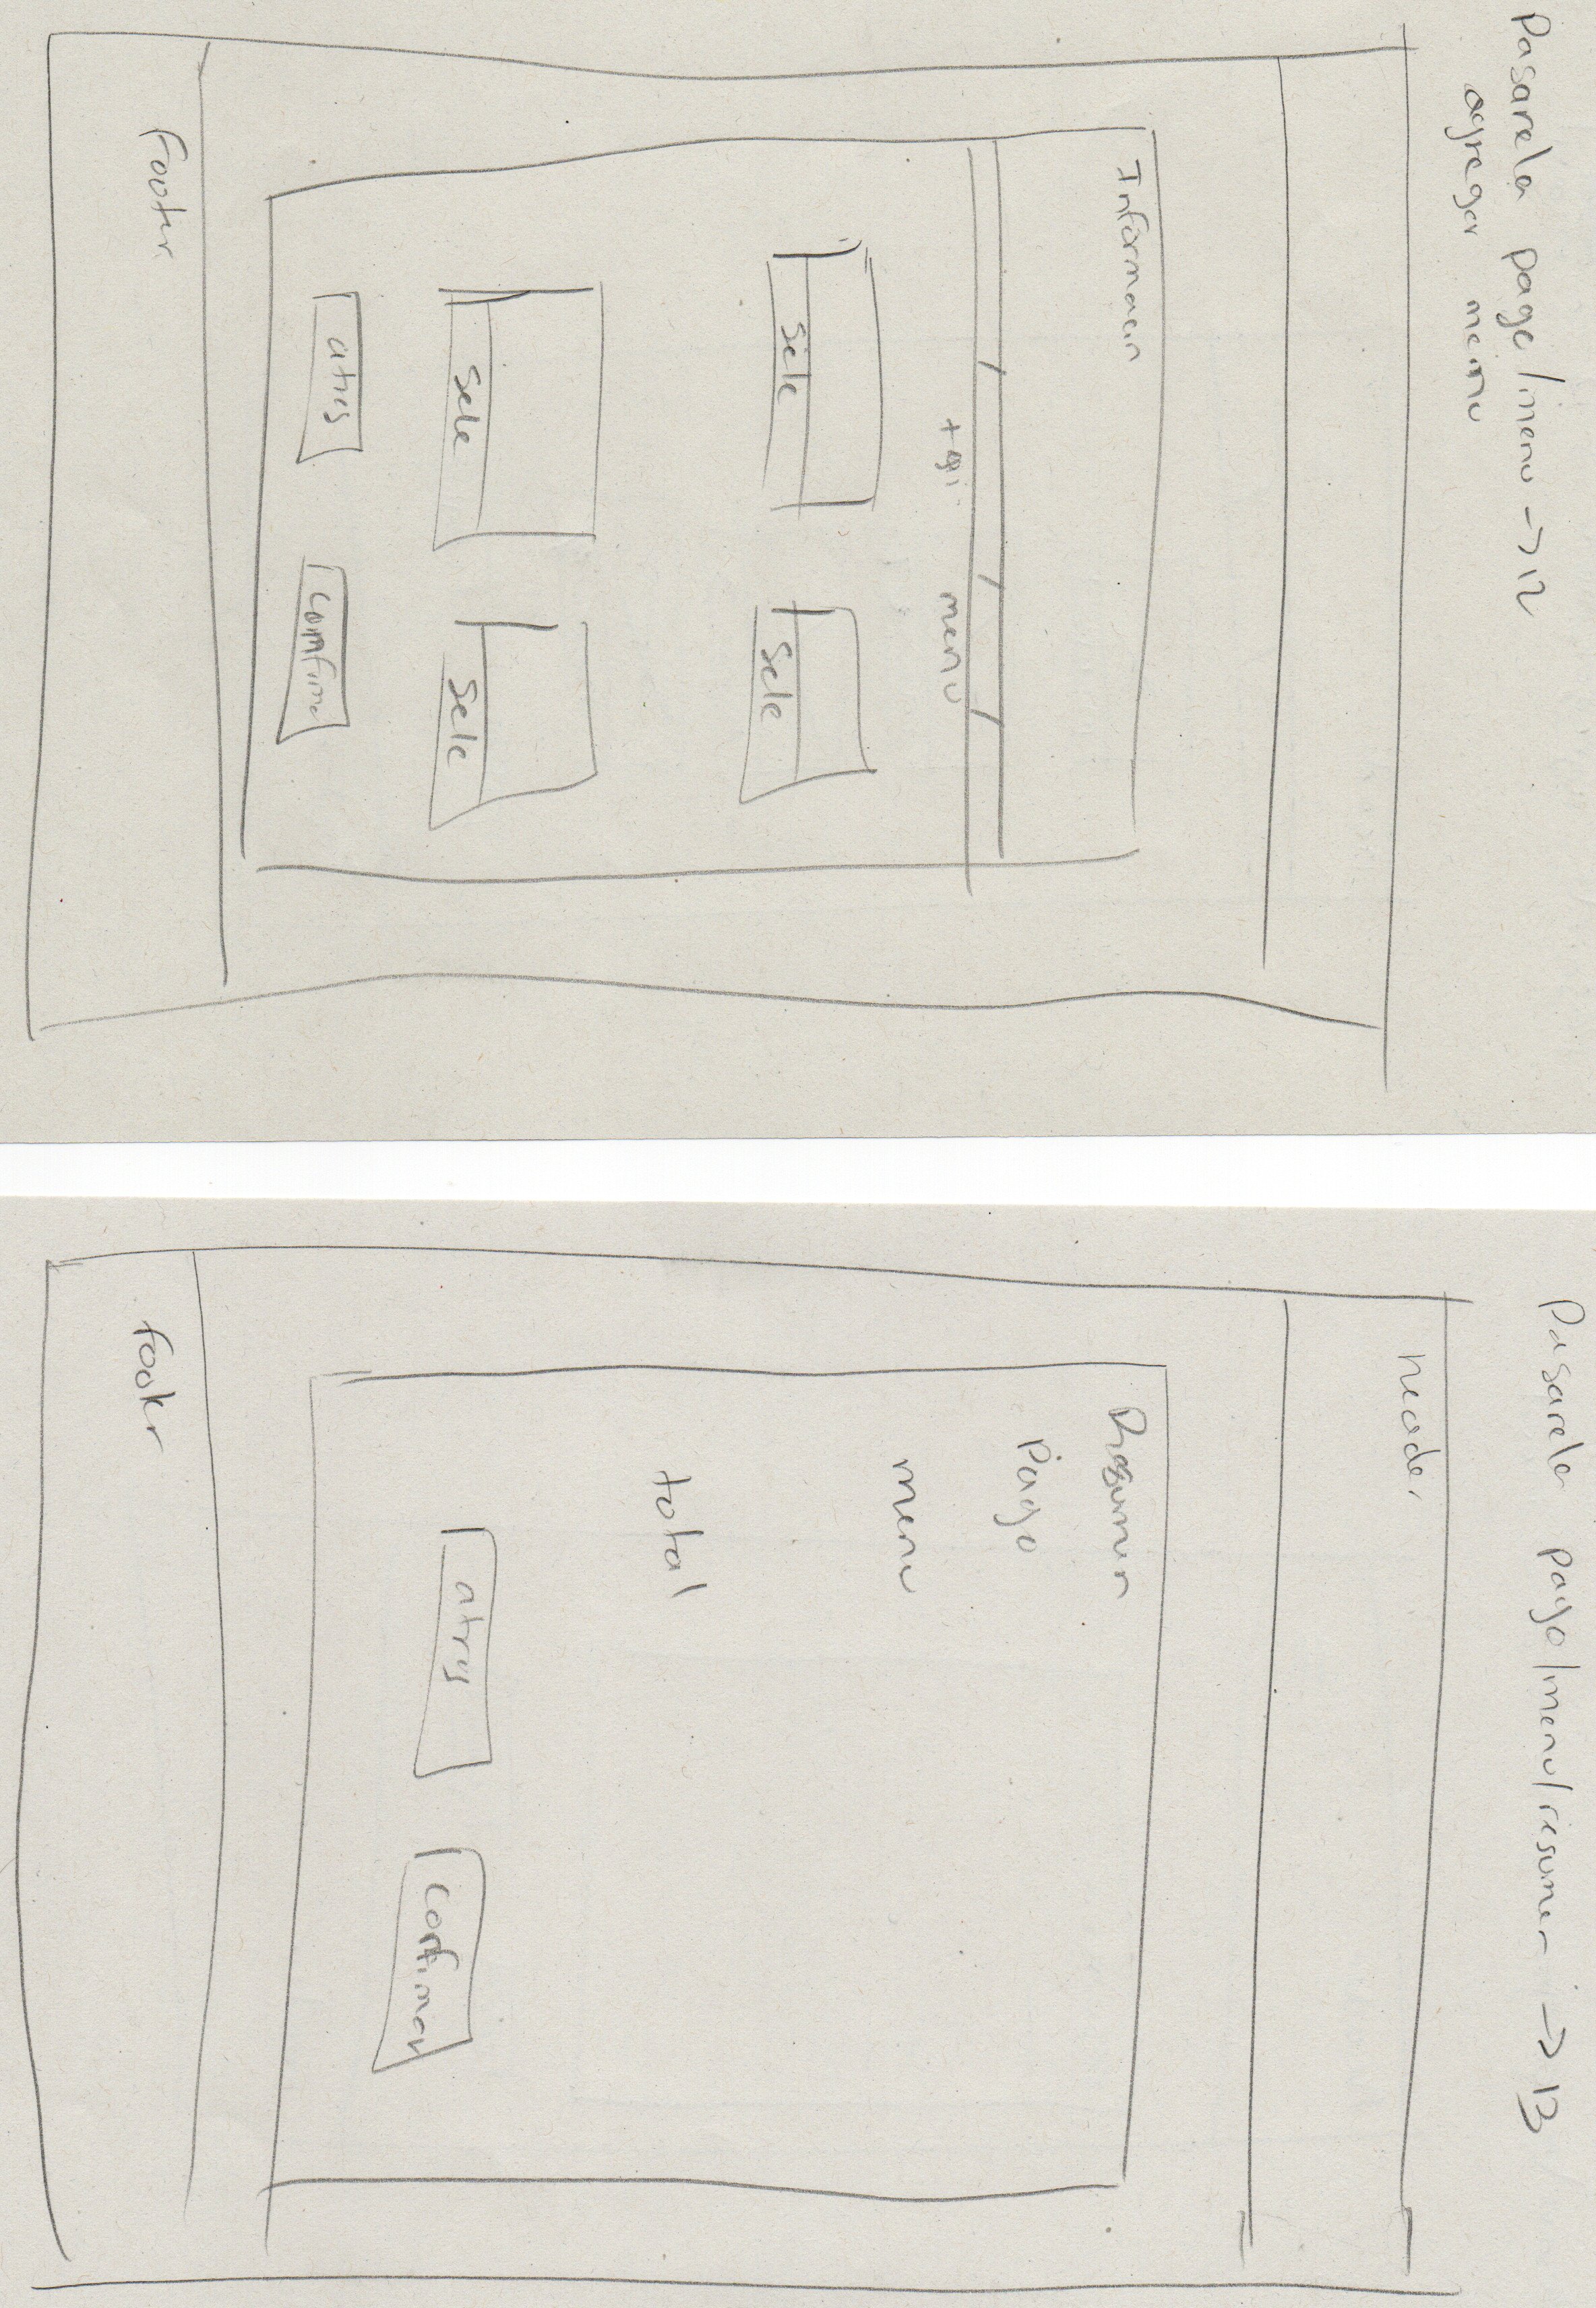 Pasarela pago/menu → 12
agregar menu
Informacin
menu
Sele
Sele
Sele
Sele
atras
comfirma
Footer
Pasarela pago/menu/resumen → 13
header
Resumen
Pago
menu
total
atras
confirmar
footer